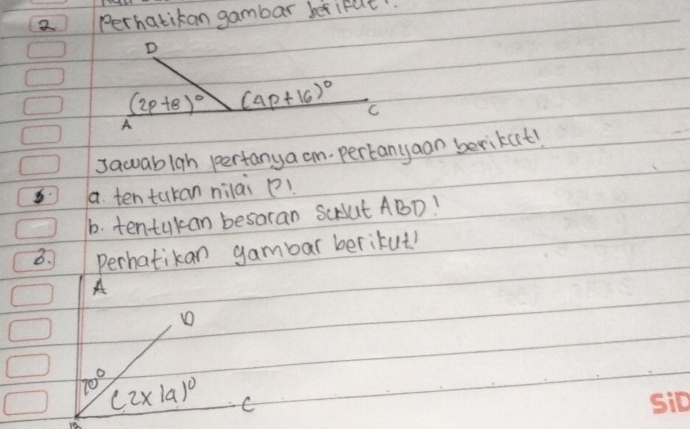 2 Perhatikan gambar berikut!
D
(2p+8)° (4p+16)°
A C
Jawablah pertanyaan-pertanyaan berikut!
a. tentukan nilai P!
b. tentukan besaran sudut ABD!
3. Perhatikan gambar berikut!
A
D
70°
(2x1a)°
B C
SiD